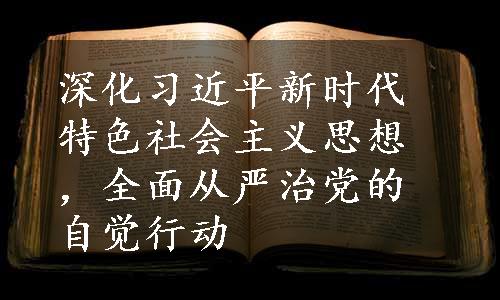 深化习近平新时代
特色社会主义思想
，全面从严治党的
自觉行动